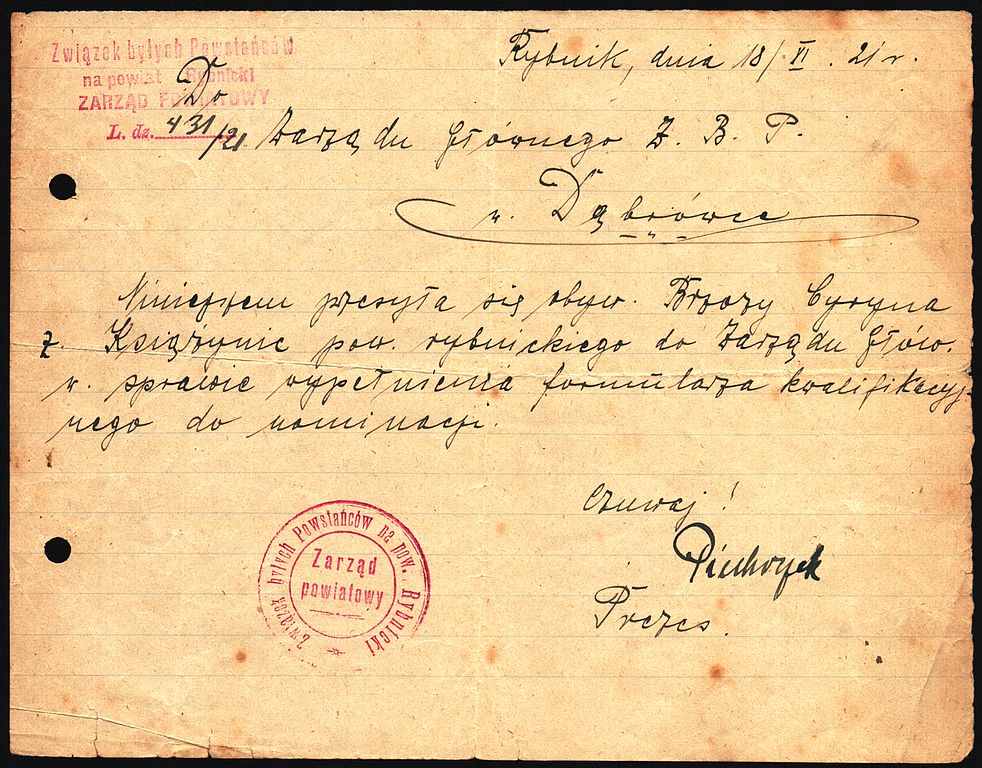 Związek byłych Powstańców
na powiat Rybnicki
ZARZĄD POWIATOWY
L. dz. 431/21
Rybnik, dnia 18/XI. 21 r.
Do
Zarządu Głównego Z. B. P.
w. Dąbrówce
Niniejszem przesyła się obyw. Brzozy Cyryna
z. Książynic pow. rybnickiego do Zarządu Głów.
w. sprawie wypełnienia formularza kwalifikacyj-
nego do nominacji.
Czuwaj!
Prezes.
Związek byłych Powstańców na pow. Rybnicki
Zarząd
powiatowy